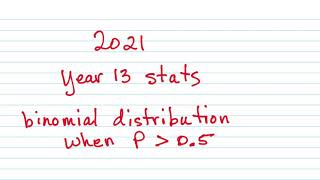 2021
Year 13 stats
binomial distribution
when P > 0.5